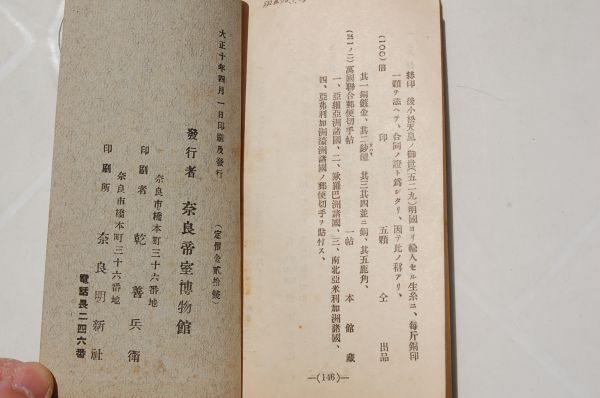 絲印 後小松天皇ノ御世(五二九)明國ヨリ輸入セル生糸ニ、每斤銅印
一顆ヲ添ヘテ、合同ノ證ト爲シタリ、因テ此ノ稱アリ、
(100)倍 印 五顆 仝 出品
其一銅鍍金、其二 其三其四並ニ銅、其五鹿角、
(三一ノ二)萬國聯合郵便切手帖 一帖 本館藏
一、亞細亞洲諸國、二、歐羅巴洲諸國、三、南北亞米利加洲諸國、
四、亞弗利加洲濠洲諸國ノ郵便切手ヲ貼付ス、
—(146)—
大正十年四月一日印刷及發行
(定價金貳拾錢)
發行者 奈良帝室博物館
奈良市橋本町三十六番地
印刷者 乾 善兵衛
奈良市橋本町三十六番地
印刷所 奈良明新社
電話長二四六番